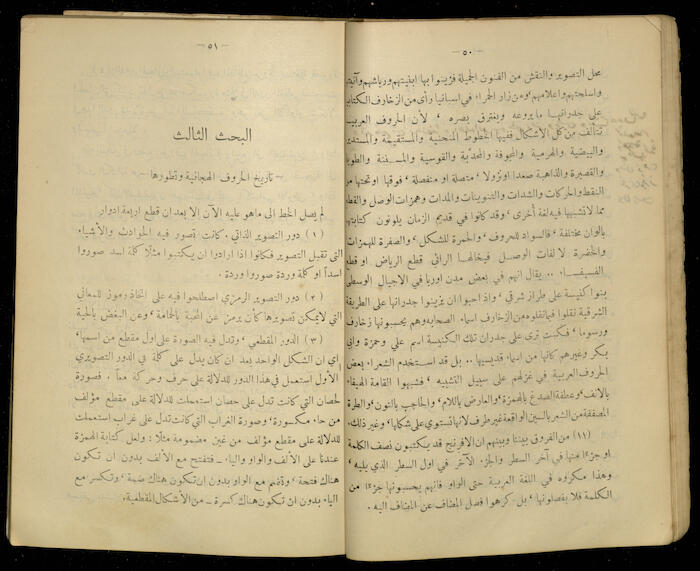 — ٥٠ —
محل التصوير والنقش من الفنون الجميلة فزينوا بها ابنيتهم ورياشهم وآنيتهم
واسلحتهم واعلامهم، ومن زار الحمراء في اسبانيا رأى من الزخارف الكتابية
على جدرانها ما يروعه ويغترق بصره ، لأن الحروف العربية
تتألف من كل الاشكال ففيها الخطوط المنحنية والمستقيمة والمستديرة
والبيضية والهرمية والمجوفة والمحدّبة والقوسية والمسننة والطويلة
والقصيرة والذاهبة صعدا ونزولا ، متصلة او منفصلة ، فوقها او تحتها من
النقط والحركات والشدات والتنوينات والمدات وهمزات الوصل والقطع
مما لا تشبهها فيه لغة أخرى ، وقد كانوا في قديم الزمان يلونون كتابتها
بألوان مختلفة ، فالسواد للحروف ، والحمرة للشكل ، والصفرة للهمزات
والخضرة لالفات الوصل فيخالها الرائي قطع الرياض او قطع
الفسيفسا . .. يقال انهم في بعض مدن اوربا في الاجيال الوسطى
بنوا كنيسة على طراز شرقي ، واذ احبوا ان يزينوا جدرانها على الطريقة
الشرقية نقلوا فيما نقلوه من الزخارف اسماء الصحابة وهم يحسبونها زخارف
ورسوما ، فكنت ترى على جدران تلك الكنيسة اسم علي وحمزة وابي
بكر وغيرهم كانها من اسماء قديسيها .. بل قد استخدم الشعراء بعض
الحروف العربية في غزلهم على سبيل التشبيه ، فشبهوا القامة الهيفاء
بالالف، وعطفة الصدغ بالهمزة، والعارض باللام، والحاجب بالنون، والطرة
المصففة من الشعر بالسين الواقعة غير طرف لانها تستوي على شكلها، وغير ذلك.
(١١) من الفروق بيننا وبينهم ان الافرنج قد يكتبون نصف الكلمة
او جزءا منها في آخر السطر والجزء الآخر في اول السطر الذي يليه ،
وهذا مكروه في اللغة العربية حتى الواو فانهم يحسبونها جزءا من
الكلمة فلا يفصلونها ، بل كرهوا فصل المضاف عن المضاف اليه .
— ٥١ —
البحث الثالث
— تاريخ الحروف الهجائية وتطورها —
لم يصل الخط الى ما هو عليه الآن إلا بعد ان قطع اربعة ادوار
(١) دور التصوير الذاتي . كانت تصور فيه الحوادث والأشياء
التي تقبل التصوير فكانوا اذا ارادوا ان يكتبوا مثلاً كلمة اسد صوروا
اسداً او كلمة وردة صوروا وردة .
(٢) دور التصوير الرمزي اصطلحوا فيه على اتخاذ رموز للمعاني
التي لا يمكن تصويرها كأن يرمز عن المحبة بالحمامة ، وعن البغض بالحية
(٣) الدور المقطعي ، وتدل فيه الصورة على اول مقطع من اسمها،
اي ان الشكل الواحد بعد ان كان يدل على كلمة في الدور التصويري
الأول استعمل في هذا الدور للدلالة على حرف وحركة معاً . فصورة
حصان التي كانت تدل على حصان استعملت للدلالة على مقطع مؤلف
من حاء مكسورة ، وصورة الغراب التي كانت تدل على غراب استعملت
للدلالة على مقطع مؤلف من غين مضمومة مثلا : ولعل كتابة الهمزة
عندنا على الألف والواو والياء — فتفتح مع الألف بدون ان تكون
هناك فتحة ، وتضم مع الواو بدون ان تكون هناك ضمة ، وتكسر مع
الياء بدون ان تكون هناك كسرة — من الأشكال المقطعية .